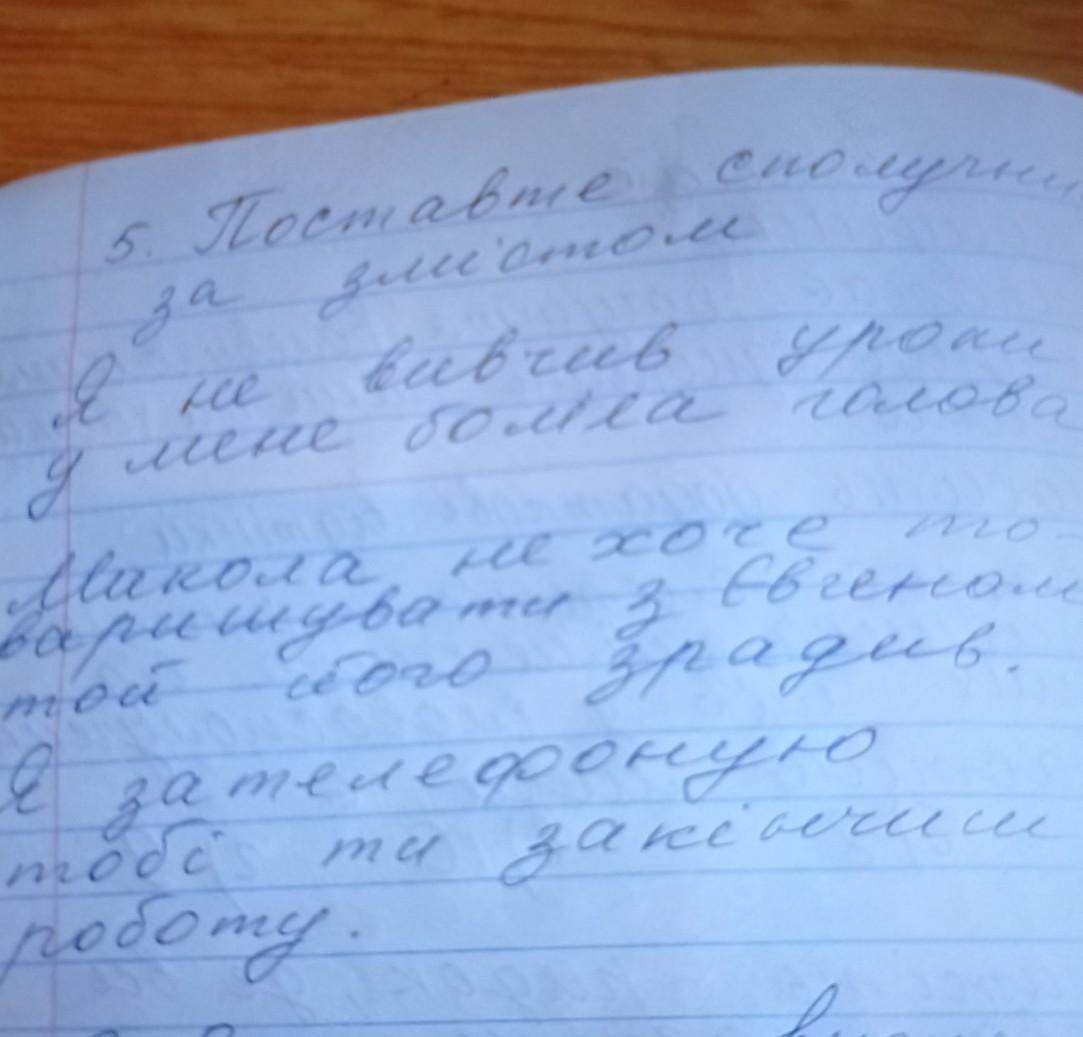 5. Поставте сполучни
за змістом
Я не вивчив уроки
у мене боліла голова
Микола не хоче то-
варишувати з Євгеном
той його зрадив.
Я зателефоную
тобі ти закінчиш
роботу.